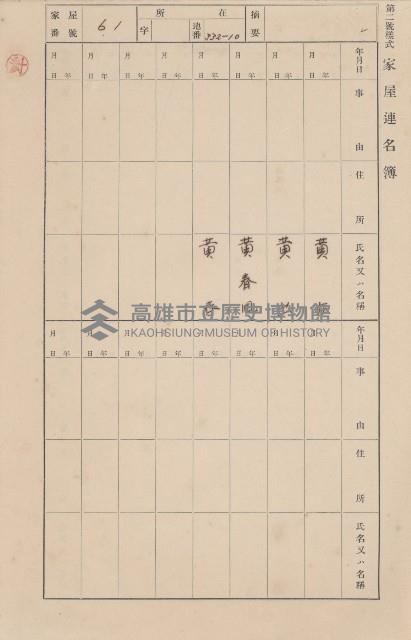 第二號樣式
家屋連名簿
摘要
所在
地番 332-10
字
家屋番號 61
年月日
事由
住所
氏名又ハ名稱
年 月 日
年 月 日
年 月 日
年 月 日
年 月 日
年 月 日
年 月 日
年 月 日
黃
黃
黃春
黃
高雄市立歷史博物館
KAOHSIUNG MUSEUM OF HISTORY
年月日
事由
住所
氏名又ハ名稱
年 月 日
年 月 日
年 月 日
年 月 日
年 月 日
年 月 日
年 月 日
年 月 日